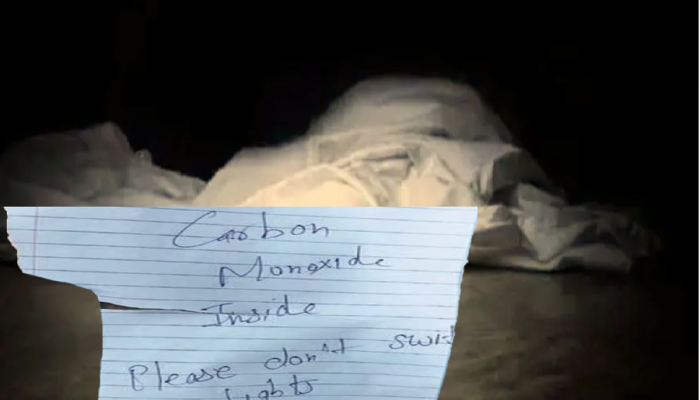 Carbon
Monoxide
Inside
Please don't swit
lights